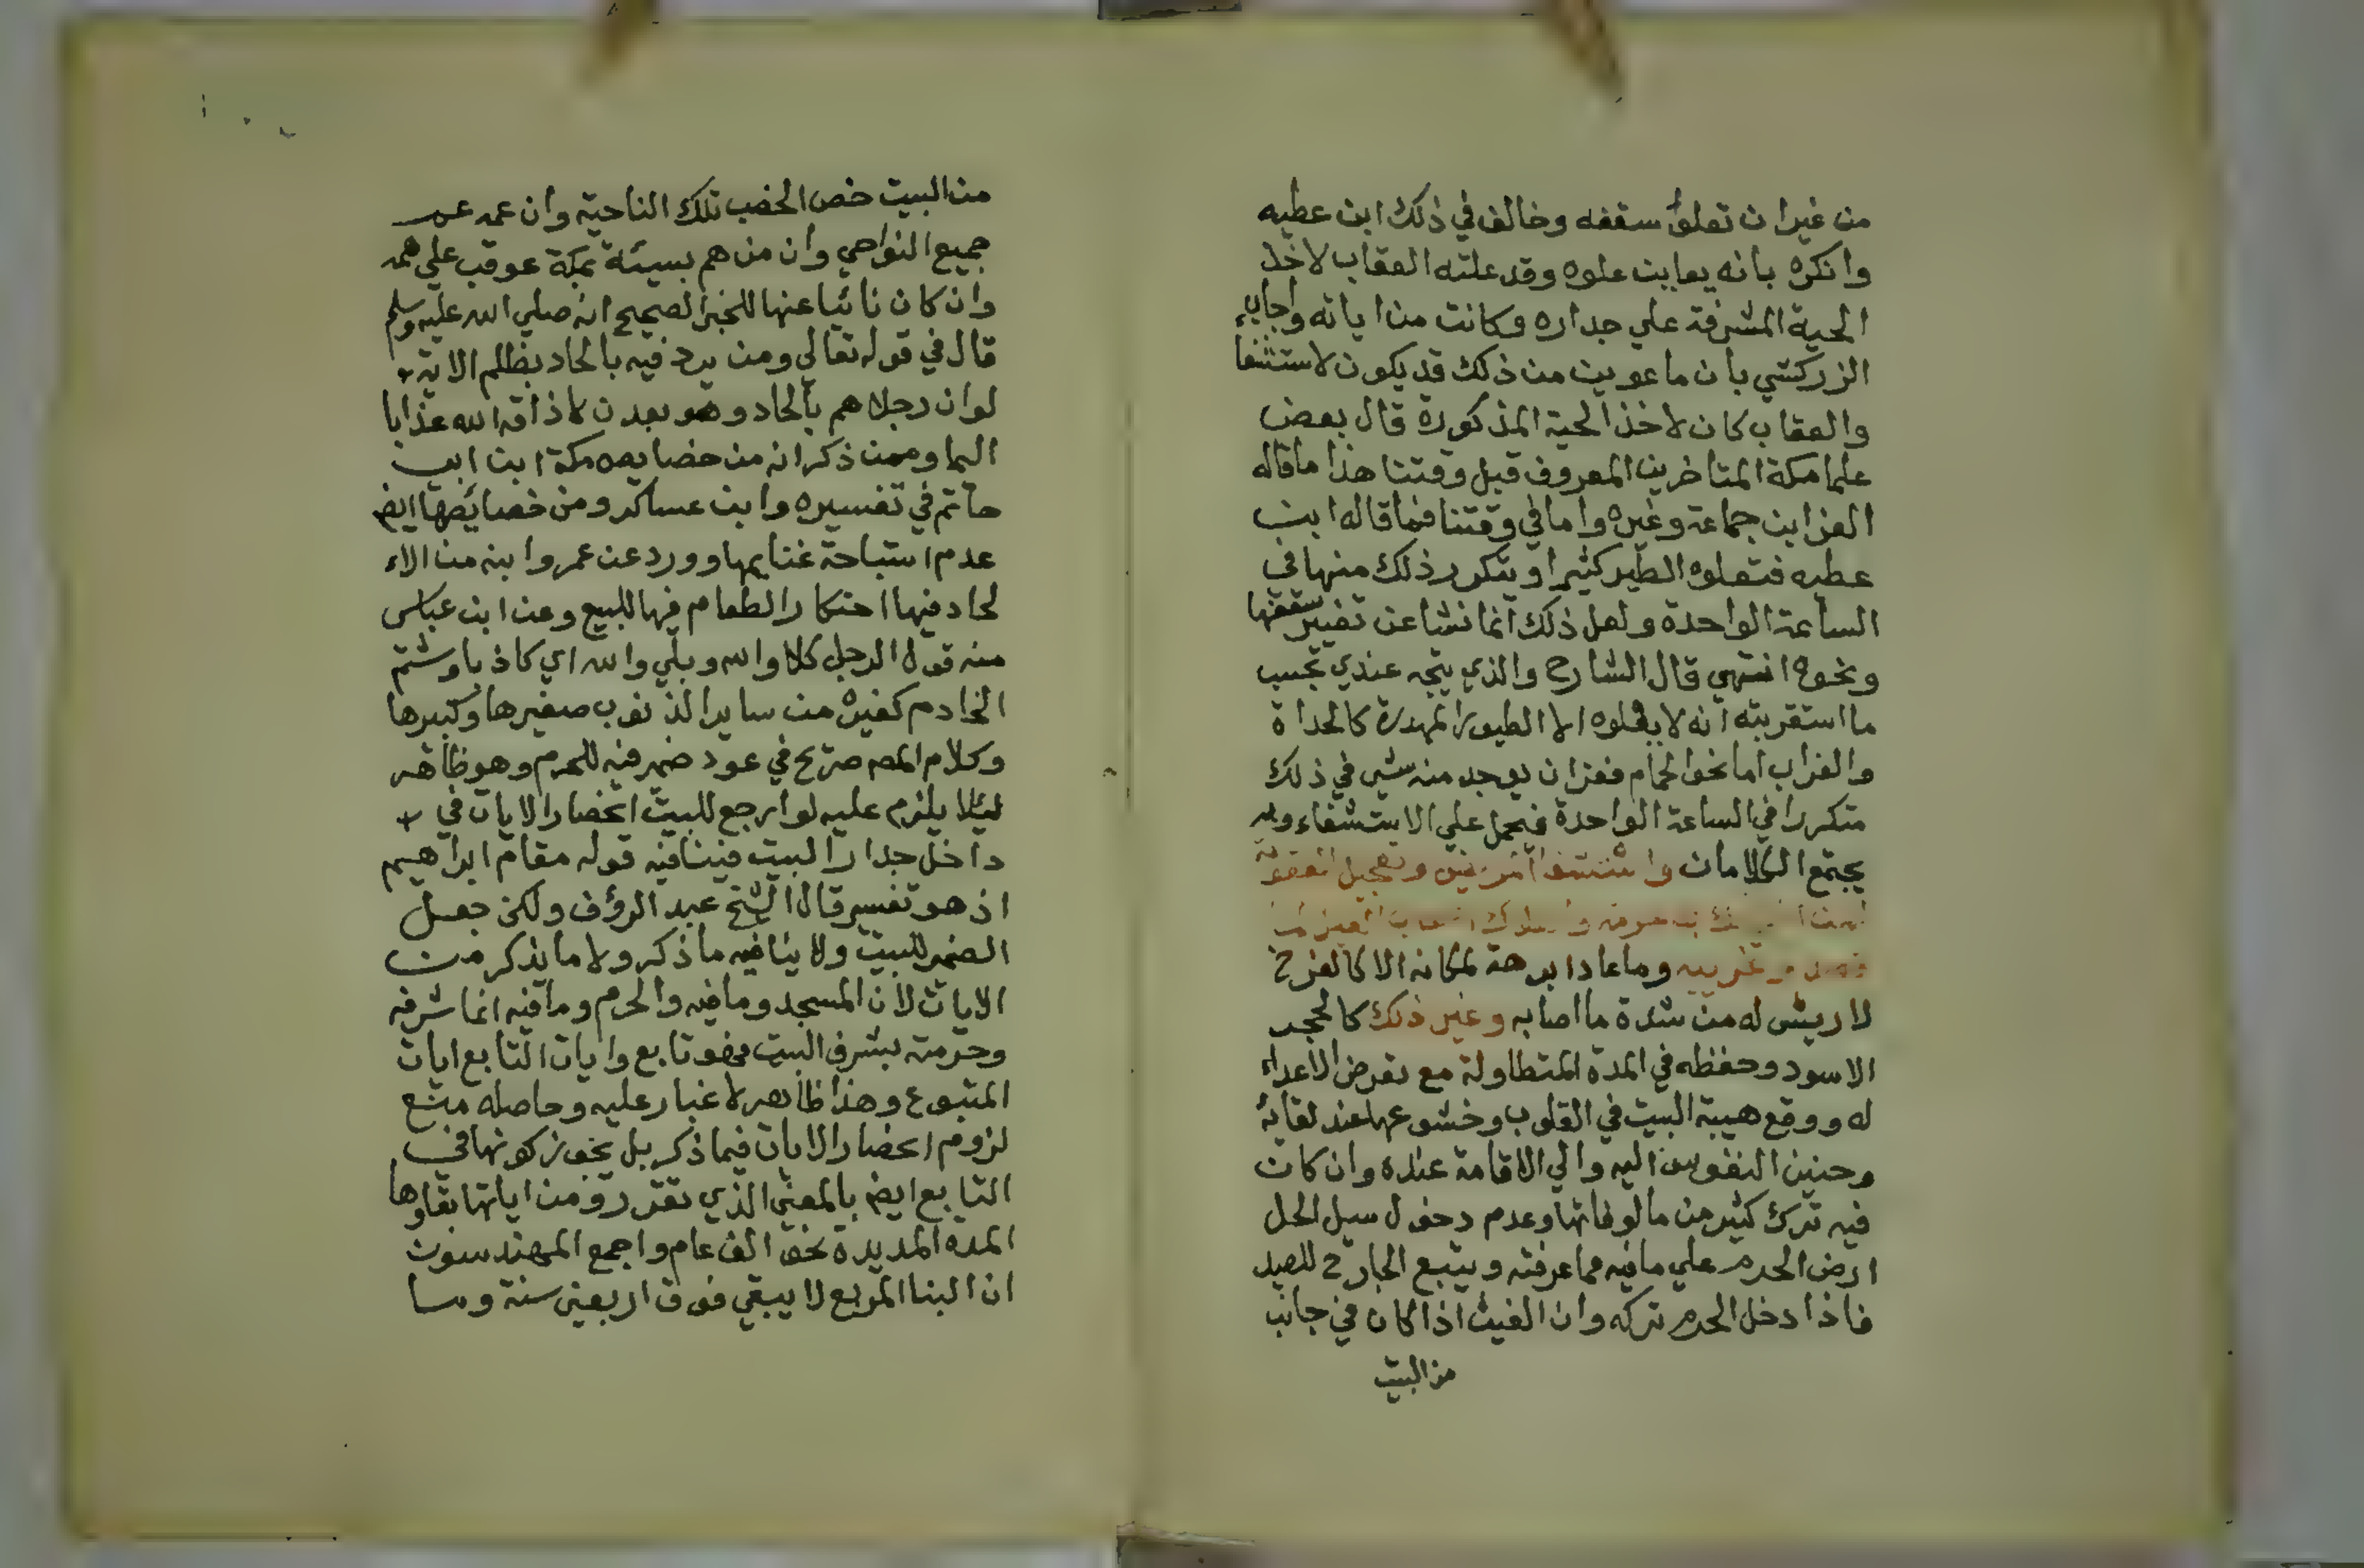 من غيران تعلو سقفه وخالف في ذلك ابن عطيه
وانكره بانه يعاين علوه وقد علته العقاب لاخذ
الحية المشرفة علي جداره وكانت من اياته واجاب
الزركشي بان ما عوين من ذلك قد يكون لاستشفا
والعقاب كان لاخذ الحية المذكورة قال بعض
علما مكة المتاخرين المعروف قبل وقتنا هذا ما قاله
العز ابن جماعة وغيره واما في وقتنا فما قاله ابن
عطيه فتعلوه الطير كثيرا ويتكرر ذلك منها في
الساعة الواحدة ولعل ذلك انما نشا عن تغيير سقفها
ونحوه انتهى قال الشارح والذي يتجه عندي بحسب
ما استقريته انه لا يعلوه الا الطيور المهدرة كالحداة
والغراب اما نحو الحمام فعزان يوجد منه شي في ذلك
متكررا في الساعة الواحدة فيحمل علي الاستشفاء وبه
يجتمع الكلامان المريض وتعجيل العقوبة
وتخريبه وما عاد ابرهة لمكانه الا كالفرخ
لا ريش له من شدة ما اصابه وغير ذلك كالحجر
الاسود وحفظه في المدة المتطاولة مع تعرض الاعداء
له ووقع هيبة البيت في القلوب وخشوعها عند لقائه
وحنين النفوس اليه والي الاقامة عنده وان كان
فيه ترك كثير من مالوفاتها وعدم دخول سيل الحل
ارض الحرم علي ما فيه مما عرفته ويتبع الجارح للصيد
فاذا دخل الحرم تركه وان الغيث اذا كان في جانب
من البيت
من البيت خص الخصب تلك الناحية وان عمه عم
جميع النواحي وان من هم بسيئة بمكة عوقب علي همه
وان كان نائيا عنها للخبر الصحيح انه صلي الله عليه وسلم
قال في قوله تعالي ومن يرد فيه بالحاد بظلم الاية
لوان رجلا هم بالحاد وهو بعدن لاذاقه الله عذابا
اليما وممن ذكر انه من خصايص مكة ابن ابي
حاتم في تفسيره وابن عساكر ومن خصائصها ايض
عدم استباحة غنايمها وورد عن عمر وابنه من الاء
لحاد فيها احتكار الطعام فيها للبيع وعن ابن عباس
منه قول الرجل كلا والله وبلي والله اي كاذبا وشتم
الخادم كغيره من ساير الذنوب صغيرها وكبيرها
وكلام المص صريح في عود ضمير فيه للحرم وهو ظاهر
ليلا يلزم عليه لو ارجع للبيت انحصار الايات في
داخل جدار البيت فينافيه قوله مقام ابراهيم
اذ هو تفسير قال الشيخ عبد الرؤف ولكن جعل
الضمير للبيت ولا ينافيه ما ذكر ولا ما يذكر من
الايات لان المسجد وما فيه والحرم وما فيه انما شرفه
وحرمته بشرف البيت فهو تابع وايات التابع ايات
المتبوع وهذا ظاهر لا غبار عليه وحاصله منع
لزوم انحصار الايات فيما ذكر بل يجوز كونها في
التابع ايض بالمعني الذي تقرر ومن اياتها بقاوها
المدة المديدة نحو الف عام واجمع المهندسون
ان البنا المربع لا يبقي فوق اربعين سنة وسا